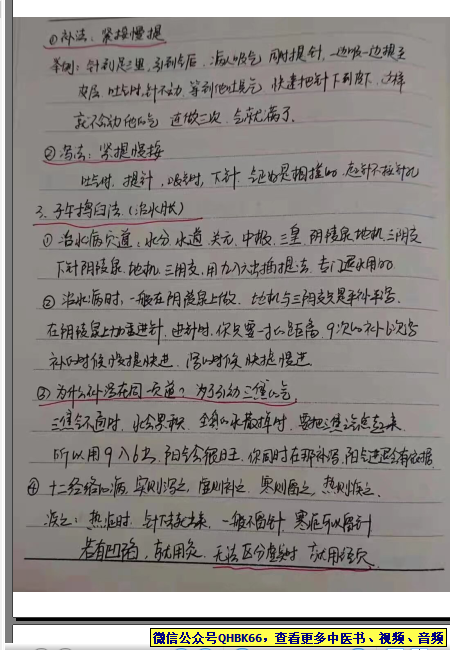 ①补法：紧按慢提
举例：针到足三里，引到气后，病人吸气同时提针，一边吸一边提至
皮层 吐气时，针不动，等到他吐完气 快速把针下到底下，这样
就不会动他的气 连做三次 气就满了。
②泻法：紧提慢按
吐气时，提针，吸气时，下针 气正好是相撞的 起针不按针孔
3、子午捣臼法（治水胀）
①治水病穴道：水分 水道 关元 中极 三皇 阴陵泉 地机 三阴交
下针阴陵泉、地机、三阴交，用九入六出插提法，专门退水用的
②治水病时，一般在阴陵泉上做，地机与三阴交是平补平泻。
在阴陵泉上力重进针，进针时，你只要一寸的距离，9次的补6次泻
补的时候慢提快进，泻的时候快提慢进。
③为什么补泻在同一穴道？为了引动三焦的气
三焦气不通时，水会累积，全身的水散掉时，要把三焦
所以用9入6出，阳气会很旺，你同时在那补泻，阳气进退会有依据
④十二经络的病，实则泻之，虚则补之，寒则留之，热则疾之。
疾之：热症时，针下去就出来，一般不留针 寒症可以留针
若有凹陷，就用灸，无法区分虚实时 就用经穴
微信公众号QHBK66，查看更多中医书、视频、音频